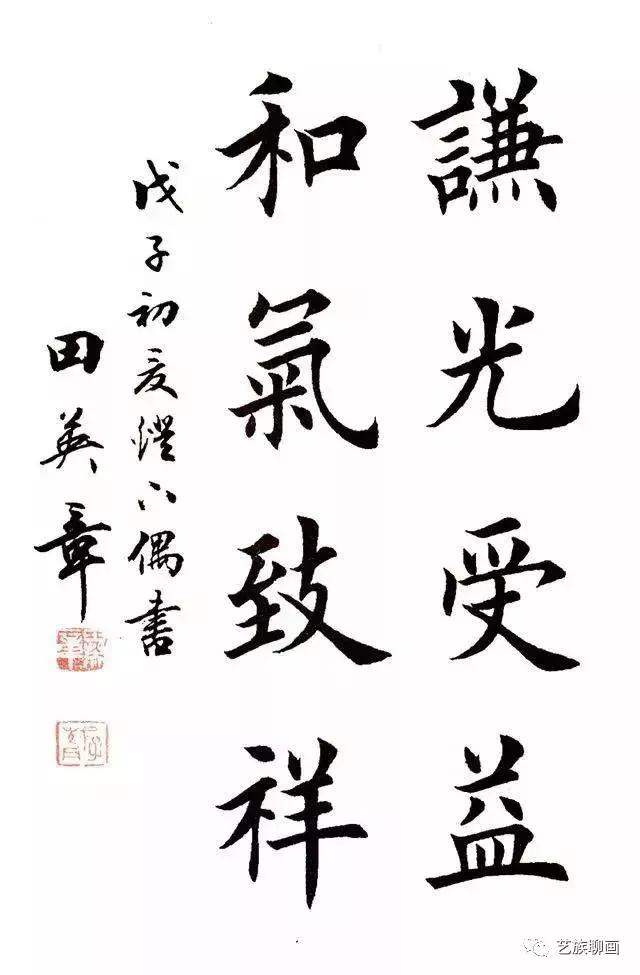 謙光受益
和氣致祥
戊子初夏燈下偶書
田英章
艺族聊画